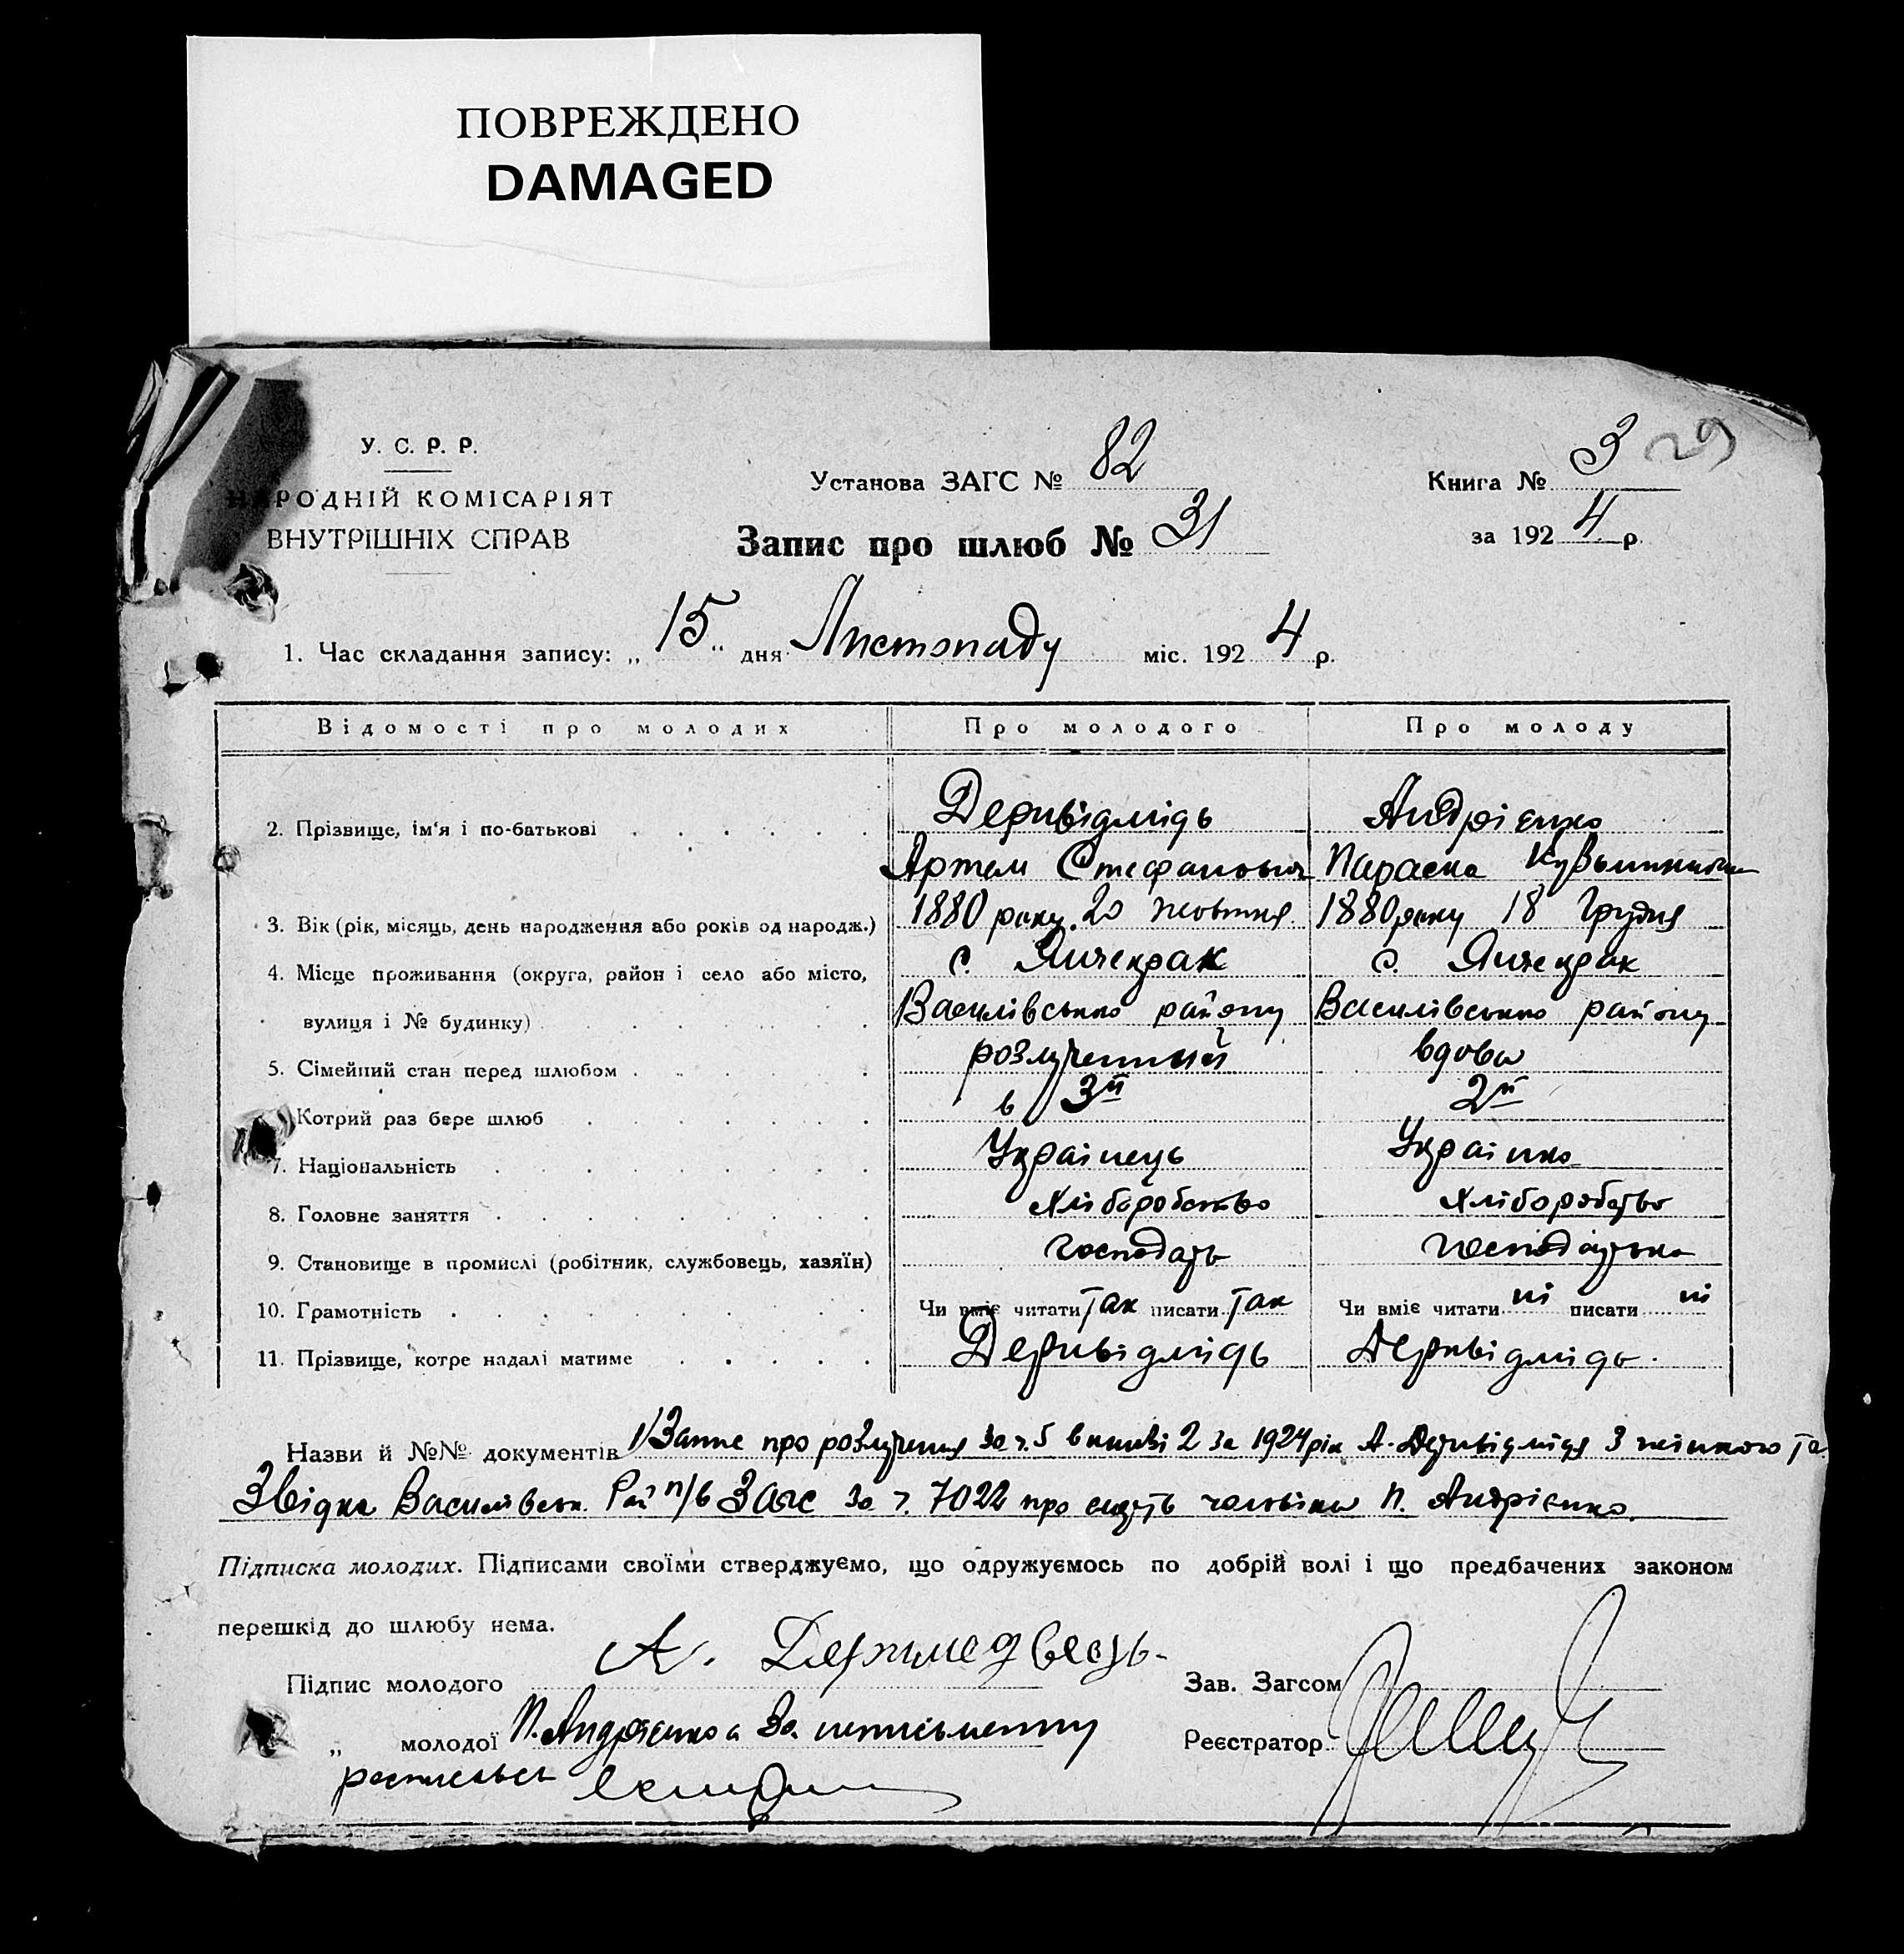 ПОВРЕЖДЕНО
DAMAGED
У. С. Р. Р.
НАРОДНІЙ КОМІСАРІЯТ
ВНУТРІШНІХ СПРАВ
Установа ЗАГС № 82
Запис про шлюб № 31
Книга № 3 29
за 1924 р.
1. Час складання запису: „15" дня Листопаду міс. 1924 р.
Відомості про молодих Про молодого Про молоду
2. Прізвище, ім'я і по-батькові Деривідмідь Андрієнко
Артем Стефанович Параска
3. Вік (рік, місяць, день народження або років од народж.) 1880 року 20 жовтня 1880 року 18 Грудня
4. Місце проживання (округа, район і село або місто, с. Янчекрак с. Янчекрак
вулиця і № будинку) Василівського району Василівського району
5. Сімейний стан перед шлюбом розлучений вдова
Котрий раз бере шлюб в 3й 2й
7. Національність Українець Українка
8. Головне заняття хліборобство хліборобство
9. Становище в промислі (робітник, службовець, хазяїн) господарь господарька
10. Грамотність Чи вміє читати так писати так Чи вміє читати ні писати ні
11. Прізвище, котре надалі матиме Деривідмідь Деривідмідь.
Назви й №№ документів 1/ Запис про розлучення за ч. 5 в книзі 2 за 1924 рік А. Деривідмідя з жінкою та
Звідка Василівськ. Рай п/в Загс за ч. 7022 про смерть чоловіка П. Андрієнко.
Підписка молодих. Підписами своїми стверджуємо, що одружуємось по добрій волі і що предбачених законом
перешкід до шлюбу нема.
Підпис молодого А. Деримедведь.
Зав. Загсом
„ молодої П. Андрієнко а за неписьменну
Реєстратор
росписався